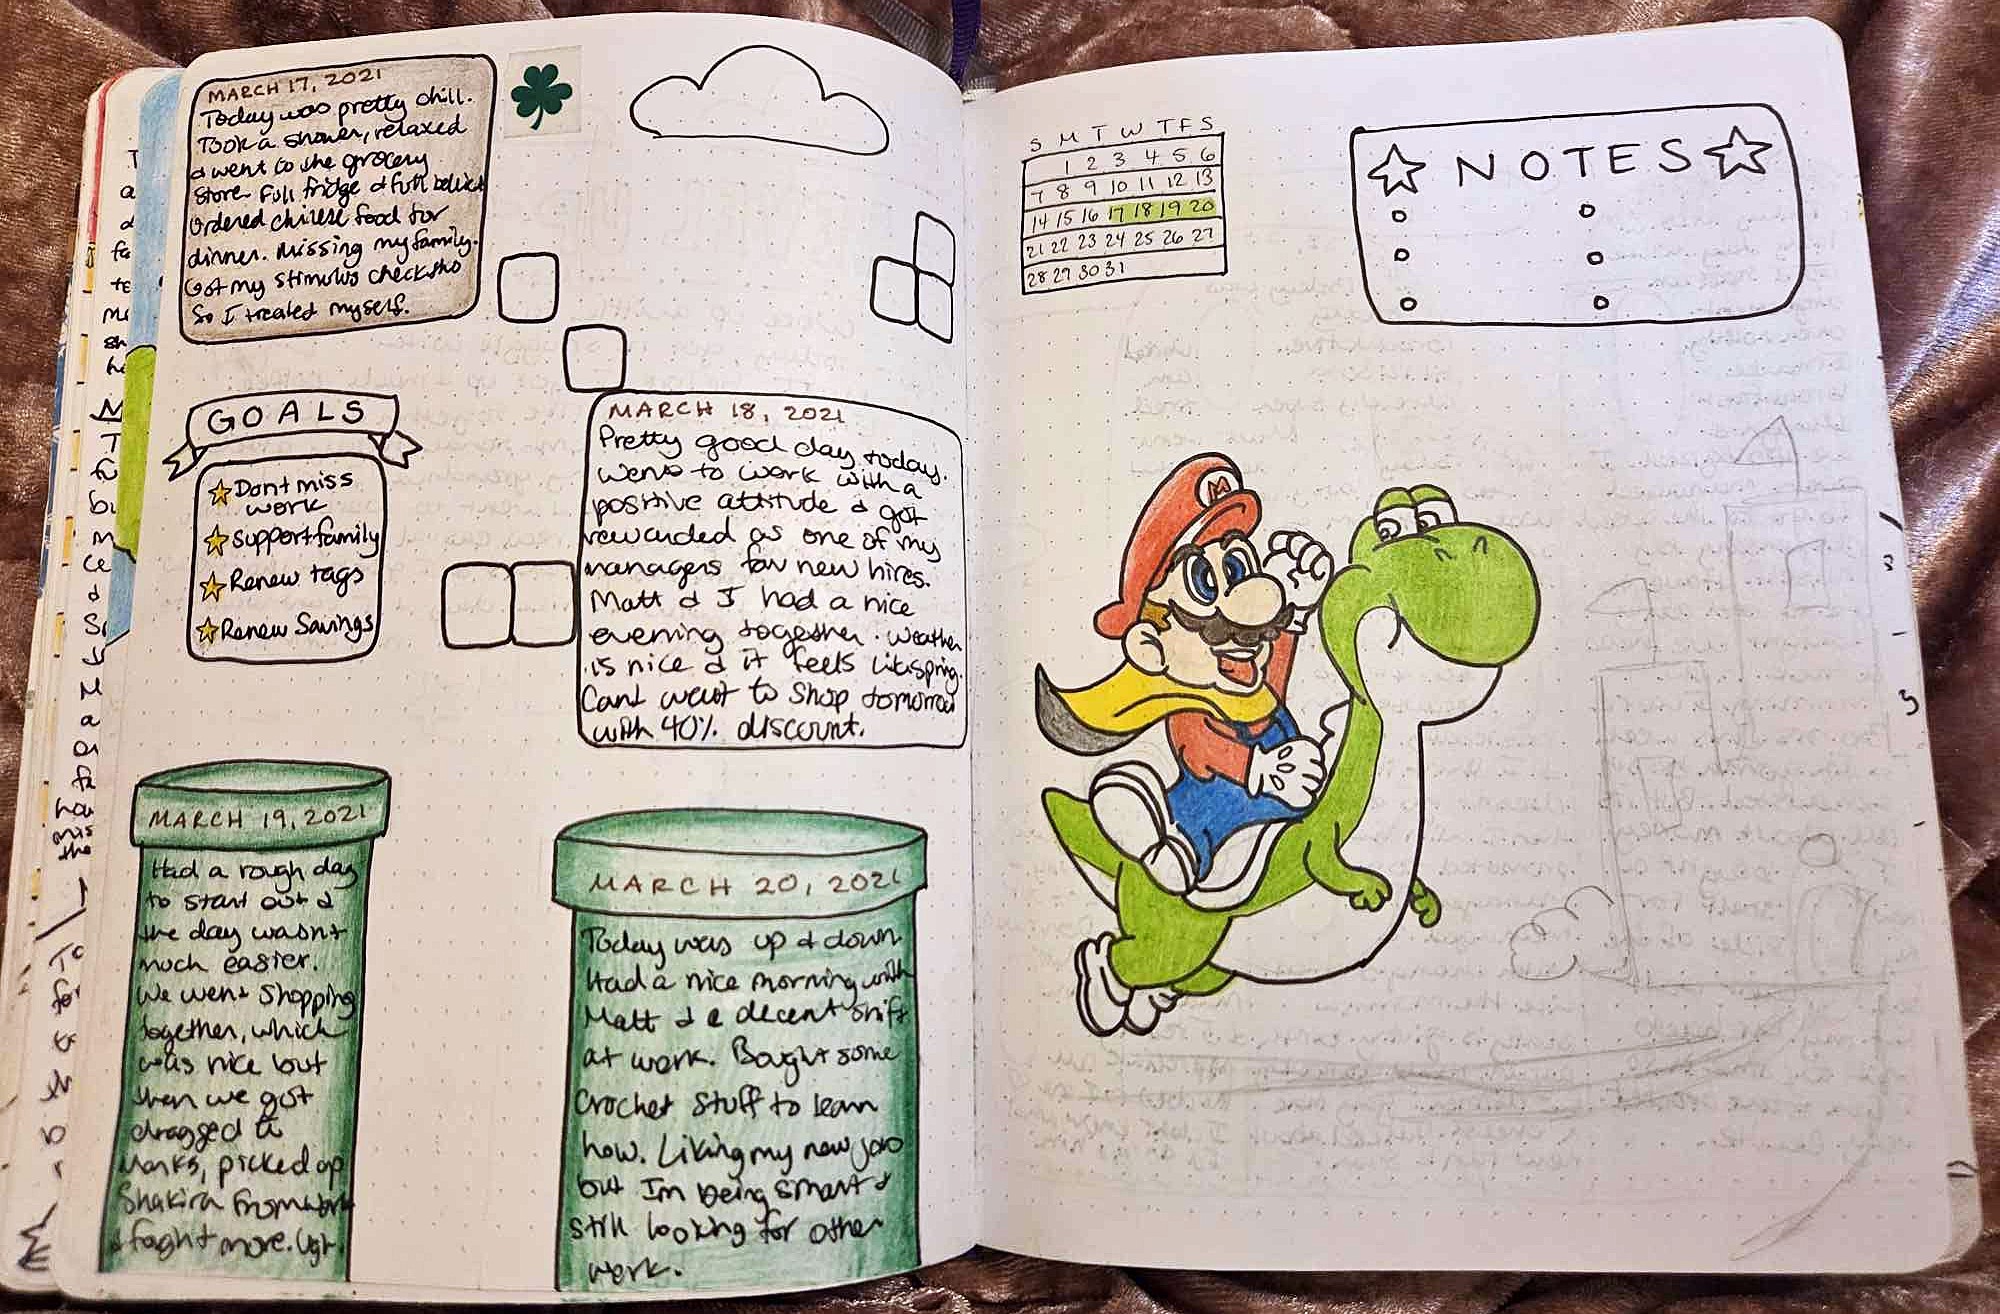 MARCH 17, 2021
Today was pretty chill.
Took a shower, relaxed
& went to the grocery
store. Full fridge & full bellies
Ordered chinese food for
dinner. Missing my family.
Got my stimulus check
So I treated myself.
GOALS
Dont miss
work
Support family
Renew tags
Renew Savings
MARCH 18, 2021
Pretty good day today.
Went to work with a
positive attitude & got
rewarded as one of my
managers fav new hires.
Matt & I had a nice
evening together. Weather
is nice & it feels like spring.
Cant wait to shop tomorrow
with 40% discount.
MARCH 19, 2021
Had a rough day
to start out &
the day wasnt
much easier.
We went shopping
together, which
was nice but
then we got
dragged to
Marks, picked up
Shakira from work
& faght more. Ugh.
MARCH 20, 2021
Today was up & down
Had a nice morning with
Matt & a decent shift
at work. Bought some
Crochet stuff to learn
how. Liking my new job
but Im being smart &
still looking for other
work.
S M T W T F S
1 2 3 4 5 6
7 8 9 10 11 12 13
14 15 16 17 18 19 20
21 22 23 24 25 26 27
28 29 30 31
NOTES
M